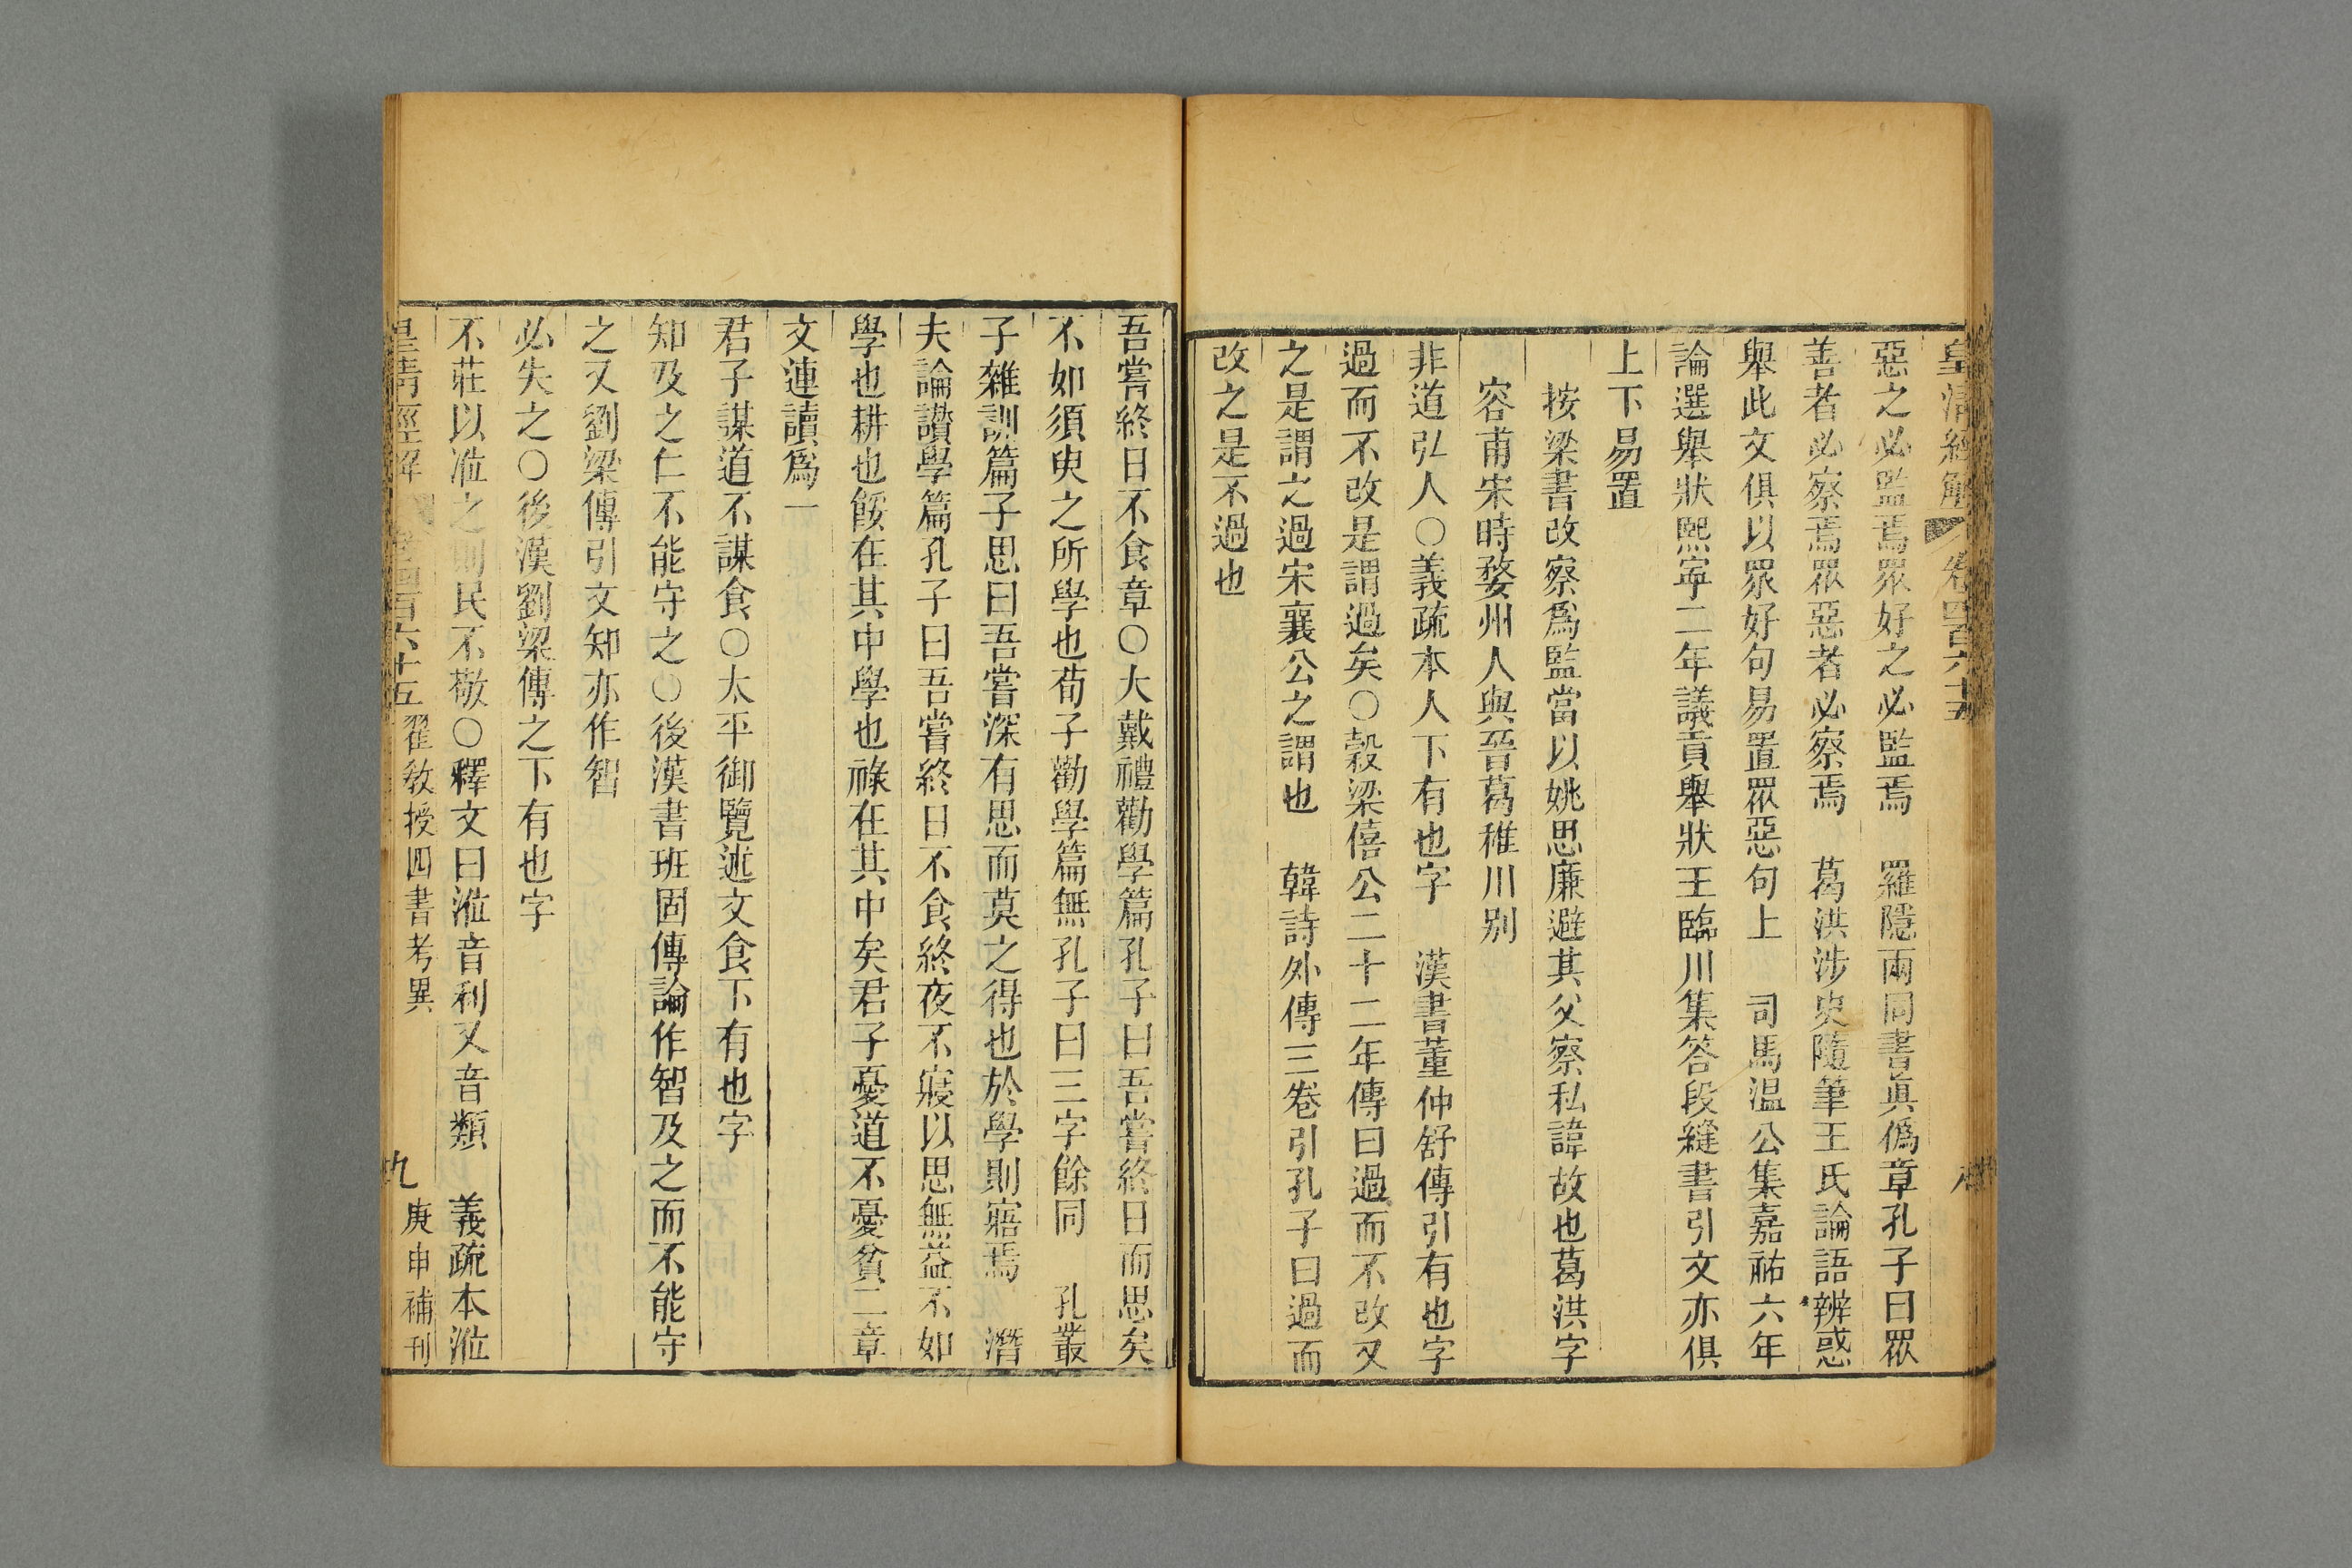 皇清經解 卷四百六十五 八
惡之必監焉眾好之必監焉　羅隱兩同書眞僞章孔子曰眾
善者必察焉眾惡者必察焉　葛洪涉史隨筆王氏論語辨惑
舉此文俱以眾好句易置眾惡句上　司馬温公集嘉祐六年
論選舉狀熙寧二年議貢舉狀王臨川集答段縫書引文亦俱
上下易置
按梁書改察爲監當以姚思廉避其父察私諱故也葛洪字
容甫宋時婺州人與晉葛稚川别
非道弘人○義疏本人下有也字　漢書董仲舒傳引有也字
過而不改是謂過矣○穀梁僖公二十二年傳曰過而不改又
之是謂之過宋襄公之謂也　韓詩外傳三卷引孔子曰過而
改之是不過也
吾嘗終日不食章○大戴禮勸學篇孔子曰吾嘗終日而思矣
不如須臾之所學也荀子勸學篇無孔子曰三字餘同　孔叢
子雜訓篇子思曰吾嘗深有思而莫之得也於學則寤焉　潛
夫論讃學篇孔子曰吾嘗終日不食終夜不寢以思無益不如
學也耕也餒在其中學也祿在其中矣君子憂道不憂貧二章
文連讀爲一
君子謀道不謀食○太平御覽述文食下有也字
知及之仁不能守之○後漢書班固傳論作智及之而不能守
之又劉梁傳引文知亦作智
必失之○後漢劉梁傳之下有也字
不莊以涖之則民不敬○釋文曰涖音利又音類　義疏本涖
皇清經解 卷四百六十五 翟教授四書考異 九 庚申補刊